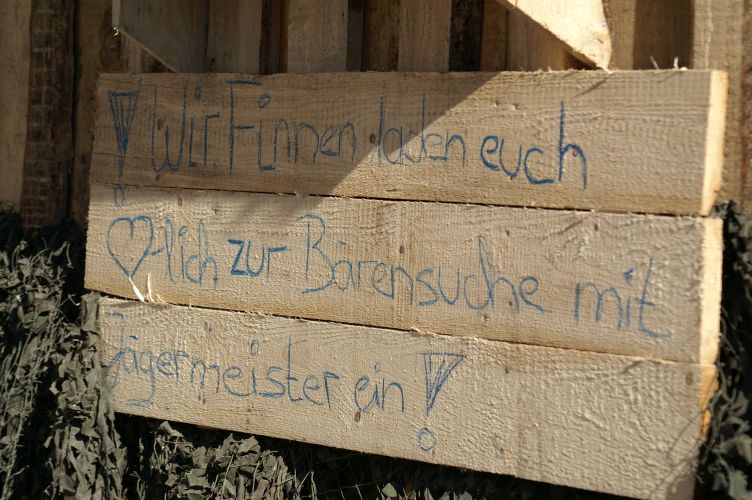 ! Wir Finnen laden euch
♡-lich zur Bärensuche mit
Jägermeister ein!